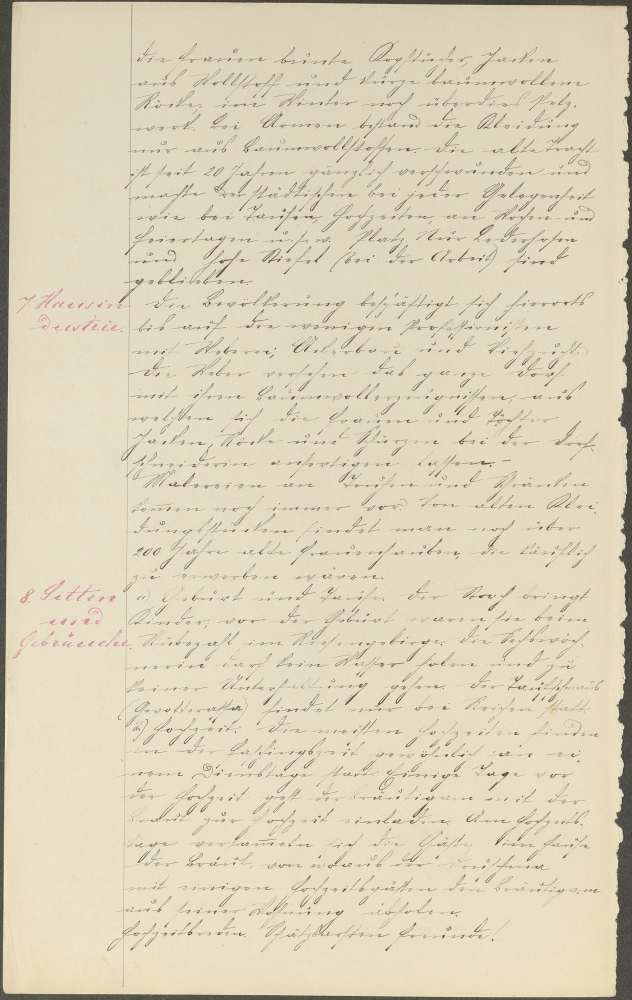 die Frauen bunte Kopftücher, Jacken
aus Wollstoff und kurze baumwollene
Röcke; im Winter noch überdies Pelz-
werk. Bei Armen bestand die Kleidung
nur aus Baumwollstoffen. Die alte Tracht
ist seit 20 Jahren gänzlich verschwunden und
machte der städtischen bei jeder Gelegenheit
wie bei Taufen, Hochzeiten, an Wochen- und
Feiertagen u. s. w. Platz. Nur Lederhosen
und hohe Stiefel (bei der Arbeit) sind
geblieben.
7. Hausin
dustrie.
Die Bevölkerung beschäftigt sich hierorts
bis auf die wenigen Professionisten
mit Weberei, Ackerbau und Viehzucht.
Die Weber versehen das ganze Dorf
mit ihren Baumwollerzeugnissen, aus
welchen sich die Frauen und Töchter
Jacken, Röcke und Schürzen bei der Dorf-
schneiderin anfertigen lassen. –
Malereien an Truhen und Schränken
kommen noch immer vor. Von alten Klei-
dungsstücken findet man noch über
200 Jahre alte Frauenhauben, die käuflich
zu erwerben wären.
8. Sitten
und
Gebräuche.
a) Geburt und Taufe. Der Storch bringt
Kinder, vor der Geburt waren sie beim
Rübezahl im Riesengebirge. Die Wöch-
nerin darf kein Wasser holen und zu
keiner Unterhaltung gehen. Der Taufschmaus
findet nur bei Reichen statt.
b) Hochzeit: Die meisten Hochzeiten finden
in der Faschingszeit gewöhnlich an ei-
nem Dienstage statt. Einige Tage vor
der Hochzeit geht der Bräutigam mit der
Braut zur Hochzeit einladen. Am Hochzeits-
tage versammeln sich die Gäste im Hause
der Braut, von wo aus der
mit einigen Hochzeitsgästen den Bräutigam
aus seiner Wohnung abholen.
Hochzeitsreden. Schätzbarsten Freunde!